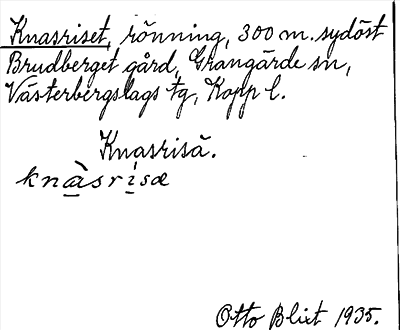 Knasriset, rönning, 300 m. sydöst
Brudberget gård, Grangärde sn,
Västerbergslags tg, Kopp l.
Knasrisä.
knàsrisæ
Otto Blixt 1935.